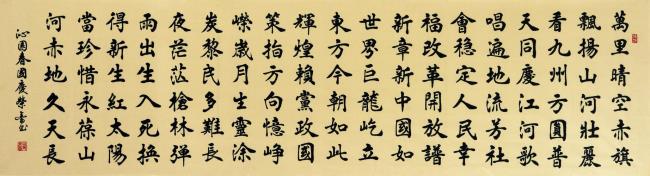 萬里晴空赤旗
飄揚山河壯麗
看九州方圓普
天同慶江河歌
唱遍地流芳社
會稳定人民幸
福改革開放譜
新章新中國如
世界巨龍屹立
東方今朝如此
輝煌賴黨政國
策指方向憶崢
嶸歲月生靈涂
炭黎民多難長
夜茫茫槍林彈
雨出生入死换
得新生紅太陽
當珍惜永葆山
河赤地久天長
沁园春國慶榮書